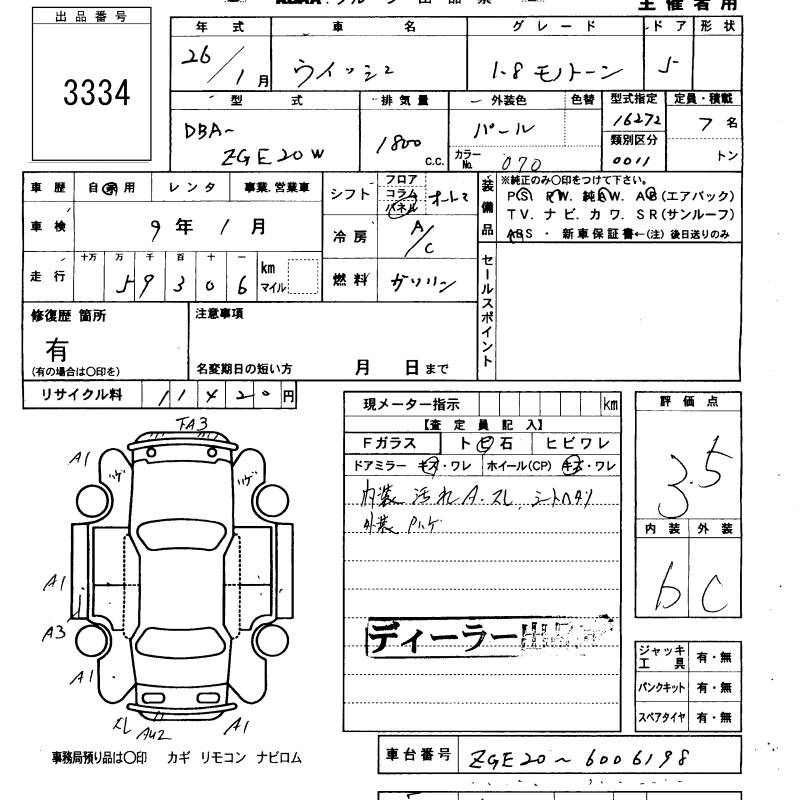 主催者用
出品番号
3334
年式 車名 グレード ドア 形状
26/1月 ウイッシュ 1.8 モノトーン 5
型式 排気量 外装色 色替 型式指定 定員・積載
DBA~ ZGE20W 1800 c.c. パール 16272 7名
カラーNo. 070 類別区分 0011 トン
車歴 自家用 レンタ 事業.営業車
シフト フロア コラム パネル オートマ
装備品 ※純正のみ〇印をつけて下さい。
PS. PW. 純AW. AB(エアバック)
TV. ナビ. カワ. SR(サンルーフ)
ABS ・ 新車保証書←(注)後日送りのみ
車検 9年1月
冷房 A/C
走行 十万 万 千 百 十 一
59306 km マイル
燃料 ガソリン
セールスポイント
修復歴 箇所 注意事項
有
(有の場合は〇印を) 名変期日の短い方 月 日まで
リサイクル料 11420円
現メーター指示 km
【査定員記入】
Fガラス トビ石 ヒビワレ
ドアミラー キズ・ワレ ホイール(CP) キズ・ワレ
内装 汚れ A.スレ シートヘタリ
外装 Pハゲ
ディーラー
評価点
3.5
内装 外装
b C
FA3
A1
ハゲ
ハゲ
A1
A3
A1
スレ AU2 A1
ジャッキ工具 有・無
パンクキット 有・無
スペアタイヤ 有・無
事務局預り品は〇印 カギ リモコン ナビロム
車台番号 ZGE20~6006198